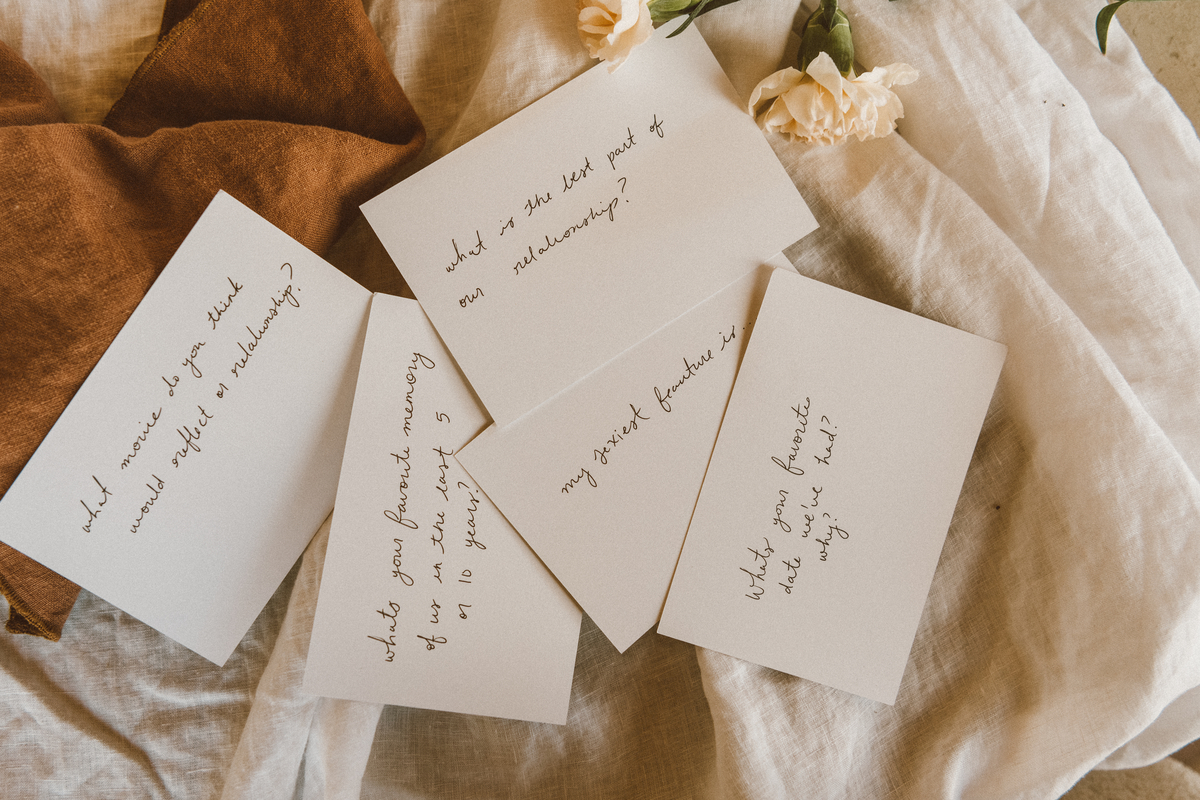 what movie do you think
would reflect or relationship?
whats your favorite memory
of us in the last 5
or 10 years?
what is the best part of
our relationship?
my sexiest feauture is.
Whats your favorite
date we've had?
why?